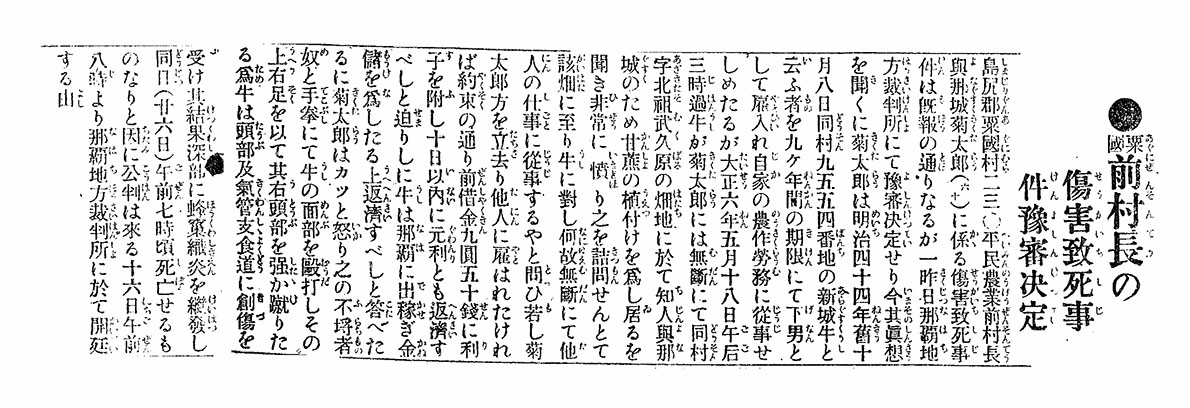 ●粟國前村長の
傷害致死事
件豫審決定
島尻郡粟國村二三〇平民農業前村長
與那城菊太郎に係る傷害致死事
件は旣報の通りなるが一昨日那覇地
方裁判所にて豫審決定せり今其眞想
を聞くに菊太郎は明治四十四年舊十
月八日同村九五五四番地の新城牛と
云ふ者を九ケ年間の期限にて下男と
して雇入れ自家の農作勞務に從事せ
しめたるが大正六年五月十八日午后
三時過牛が菊太郎には無斷にて同村
字北祖武久原の畑地に於て知人與那
城のため甘蔗の植付けを爲し居るを
聞き非常に憤り之を詰問せんとて
該畑に至り牛に對し何故無斷にて他
人の仕事に從事するやと問ひ若し菊
太郎方を立去り他人に雇はれたけれ
ば約束の通り前借金九圓五十錢に利
子を附し十日以內に元利とも返濟す
べしと迫りしに牛は那覇に出稼ぎ金
儲を爲したる上返濟すべしと答べた
るに菊太郎はカツと怒り之の不埓者
奴と手拳にて牛の面部を毆打しその
上右足を以て其右頭部を强か蹴りた
る爲牛は頭部及氣管支食道に創傷を
受け其結果深部に蜂窠織炎を繼發し
同日(廿六日)午前七時頃死亡せるも
のなりと因に公判は來る十六日午前
八時より那覇地方裁判所に於て開廷
する由